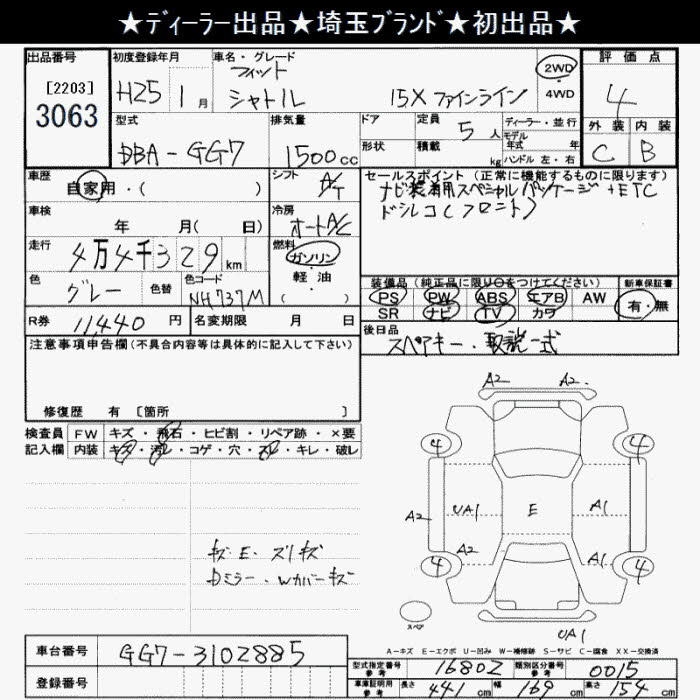 ★ディーラー出品★埼玉ブランド★初出品★
出品番号
[2203]
3063
初度登録年月
H25 1月
車名・グレード
フィット
シャトル 15X ファインライン
2WD
4WD
評価点
4
外装 内装
C B
型式
DBA-GG7
排気量
1500cc
ドア
形状
定員 5人
積載 kg
ディーラー・並行
モデル
年式 年
ハンドル 左・右
車歴
自家用・( )
シフト
A/T
セールスポイント(正常に機能するものに限ります)
ナビ装着用スペシャルパッケージ+ETC
ドラレコ(フロント)
車検
年 月( 日)
冷房
オートA/C
走行
4万4千329km
燃料
ガソリン
軽油
( ・ )
色
グレー
色替
色コード
NH737M
装備品(純正品に限り○をつけてください)
PS PW ABS エアB AW
SR ナビ TV カワ
新車保証書
有・無
R券 11,440円
名変期限 月 日
後日品
スペアキー・取説一式
注意事項申告欄(不具合内容等は具体的に記入して下さい)
修復歴 有 [箇所 ]
検査員 FW キズ・飛石・ヒビ割・リペア跡・×要
記入欄 内装 キズ・汚レ・コゲ・穴・スレ・キレ・破レ
キズ・E・スリキズ
Dミラー・Wカバーキズ
A2 A2
4 4
A2 UA1 E A1
A2 A1
4 4
スペア
UA1
A-キズ E-エクボ U-凹み W-補修跡 S-サビ C-腐食 XX-交換済
車台番号 GG7-3102885
登録番号
型式指定番号 参考 16802
類別区分番号 参考 0015
車庫証明用 参考 長さ 441cm 幅 169cm 高さ 154cm